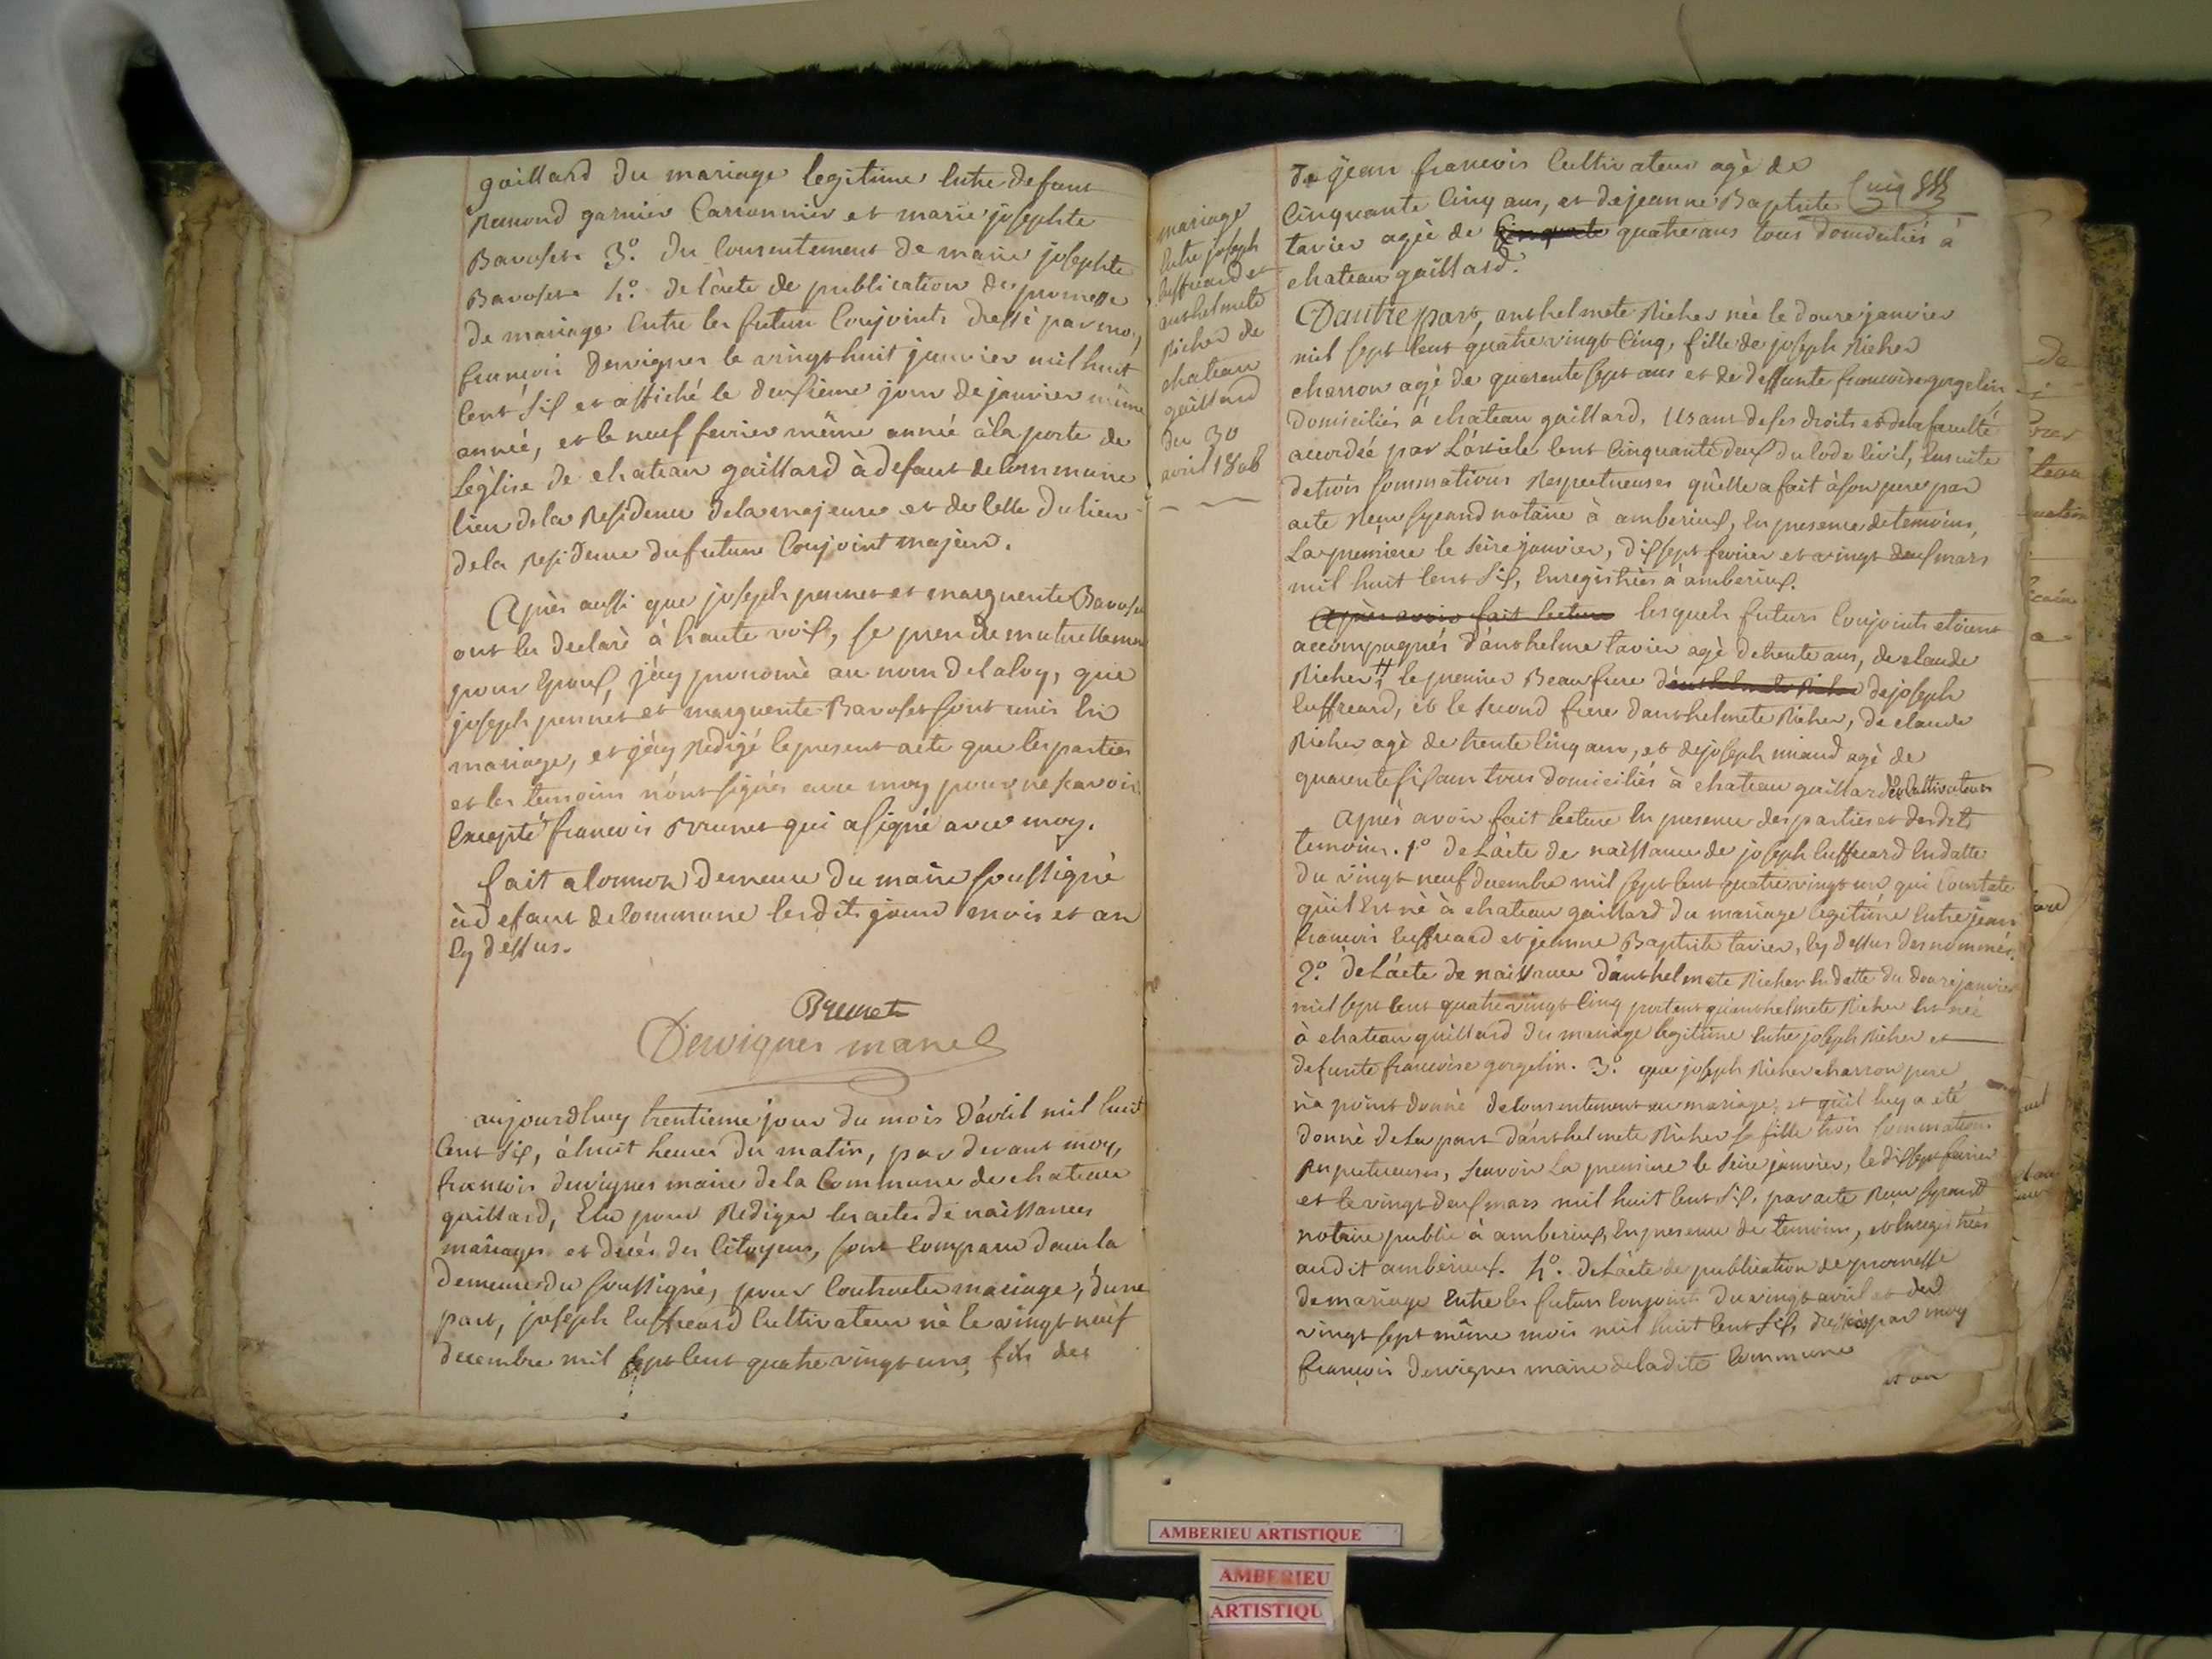 gaillard du mariage legitime entre defunt
Remond garnier Cartonnier et marie josephte
Baroset 3.º du Consentement de marie josephte
Baroset 4.º de l'acte de publication des promesse
de mariage Entre les futurs Conjoints dressé par moy
francois dervignes le vingt huit janvier mil huit
Cent six et affiché le deuxieme jour de janvier même
année, et le neuf fevrier même année à la porte de
L'église de chateau gaillard à defaut de Commune
lieu de la Residence de la majeure et de celle du lieu
de la Residence du futur Conjoint majeur.
Après aussi que joseph pennet et marguerite Baroset
ont les declaré à haute voix, se prendre mutuellement
pour Epoux, j'ay prononcé au nom de la loy, que
joseph pennet et marguerite Baroset sont unis En
mariage, et j'ay Redigé le present acte que les parties
et les temoins n'ont signés avec moy pour ne scavoir
Excepté francois Brunet qui a signé avec moy.
fait a demeure du maire soussigné
à defaut de commune lesdits jour mois et an
Cy dessus.
Brunet
Dervignes maire
aujourdhuy trentieme jour du mois d'avril mil huit
Cent six, à huit heures du matin, par devant moy,
francois dervignes maire de la Commune de chateau
gaillard, Elu pour Rediger les actes de naissances
mariages et décés des Citoyens, sont Comparu dans la
demeure du soussigné, pour Contracter mariage, d'une
part, joseph Cuffreard Cultivateur né le vingt neuf
decembre mil sept Cent quatre vingt un, fils des
mariage
Entre joseph
Cuffreard et
anthelmete
Richer de
chateau
gaillard
du 30
avril 1806
de jean francois Cultivateur agé de
Cinquante Cinq ans, et de jeanne Baptiste
tavier agée de Cinquante quatre ans tous domiciliés à
chateau gaillard.
D'autre part, anthelmete Richer née le douze janvier
mil sept Cent quatre vingt Cinq, fille de joseph Richer
charron agé de quarente sept ans et de deffunte francoise gorgelin
domiciliés à chateau gaillard. Usant de ses droits et de la faculté
accordée par L'article Cent Cinquante deux du Code Civil, Ensuite
de trois sommations Respectueuses qu'elle a fait à son pere par
acte Reçu notaire à amberieux, En presence de temoins,
La premiere le seize janvier, dix sept fevrier et vingt deux mars
mil huit Cent six, Enregistrées à amberieux.
Après avoir fait lecture lesquels futurs Conjoints etoient
accompagnés d'anthelme tavier agé de trente ans, de claude
Richer, le premier Beau frere d'anthelmete Richer de joseph
Cuffreard, et le second frere d'anthelmete Richer, de claude
Richer agé de trente Cinq ans, et de joseph miand agé de
quarente six ans tous domiciliés à chateau gaillard Cultivateurs
Après avoir fait lecture En presence des parties et desdits
temoins. 1º de L'acte de naissance de joseph Cuffreard En datte
du vingt neuf decembre mil sept Cent quatre vingt un qui Constate
qu'il Est né à chateau gaillard du mariage legitime Entre jean
francois Cuffreard et jeanne Baptiste tavier, Cy dessus denommés.
2.º de L'acte de naissance d'anthelmete Richer En datte du douze janvier
mil sept Cent quatre vingt Cinq portant qu'anthelmete Richer Est née
à chateau gaillard du mariage legitime Entre joseph Richer et
defunte francoise gorgelin. 3.º que joseph Richer charron pere
n'a point donné de Consentement au mariage, et qu'il luy a été
donné de la part d'anthelmete Richer sa fille trois sommations
Respectueuses, scavoir La premiere le seize janvier, le dix sept fevrier
et le vingt deux mars mil huit Cent six, par acte Reçu
notaire public à amberieux, En presence de temoins, et Enregistrées
audit amberieux. 4.º de L'acte de publication de promesse
de mariage Entre les futurs Conjoints du vingt avril et du
vingt sept même mois mil huit Cent six, dressés par moy
francois dervignes maire de ladite Commune
AMBERIEU ARTISTIQUE
AMBERIEU
ARTISTIQU